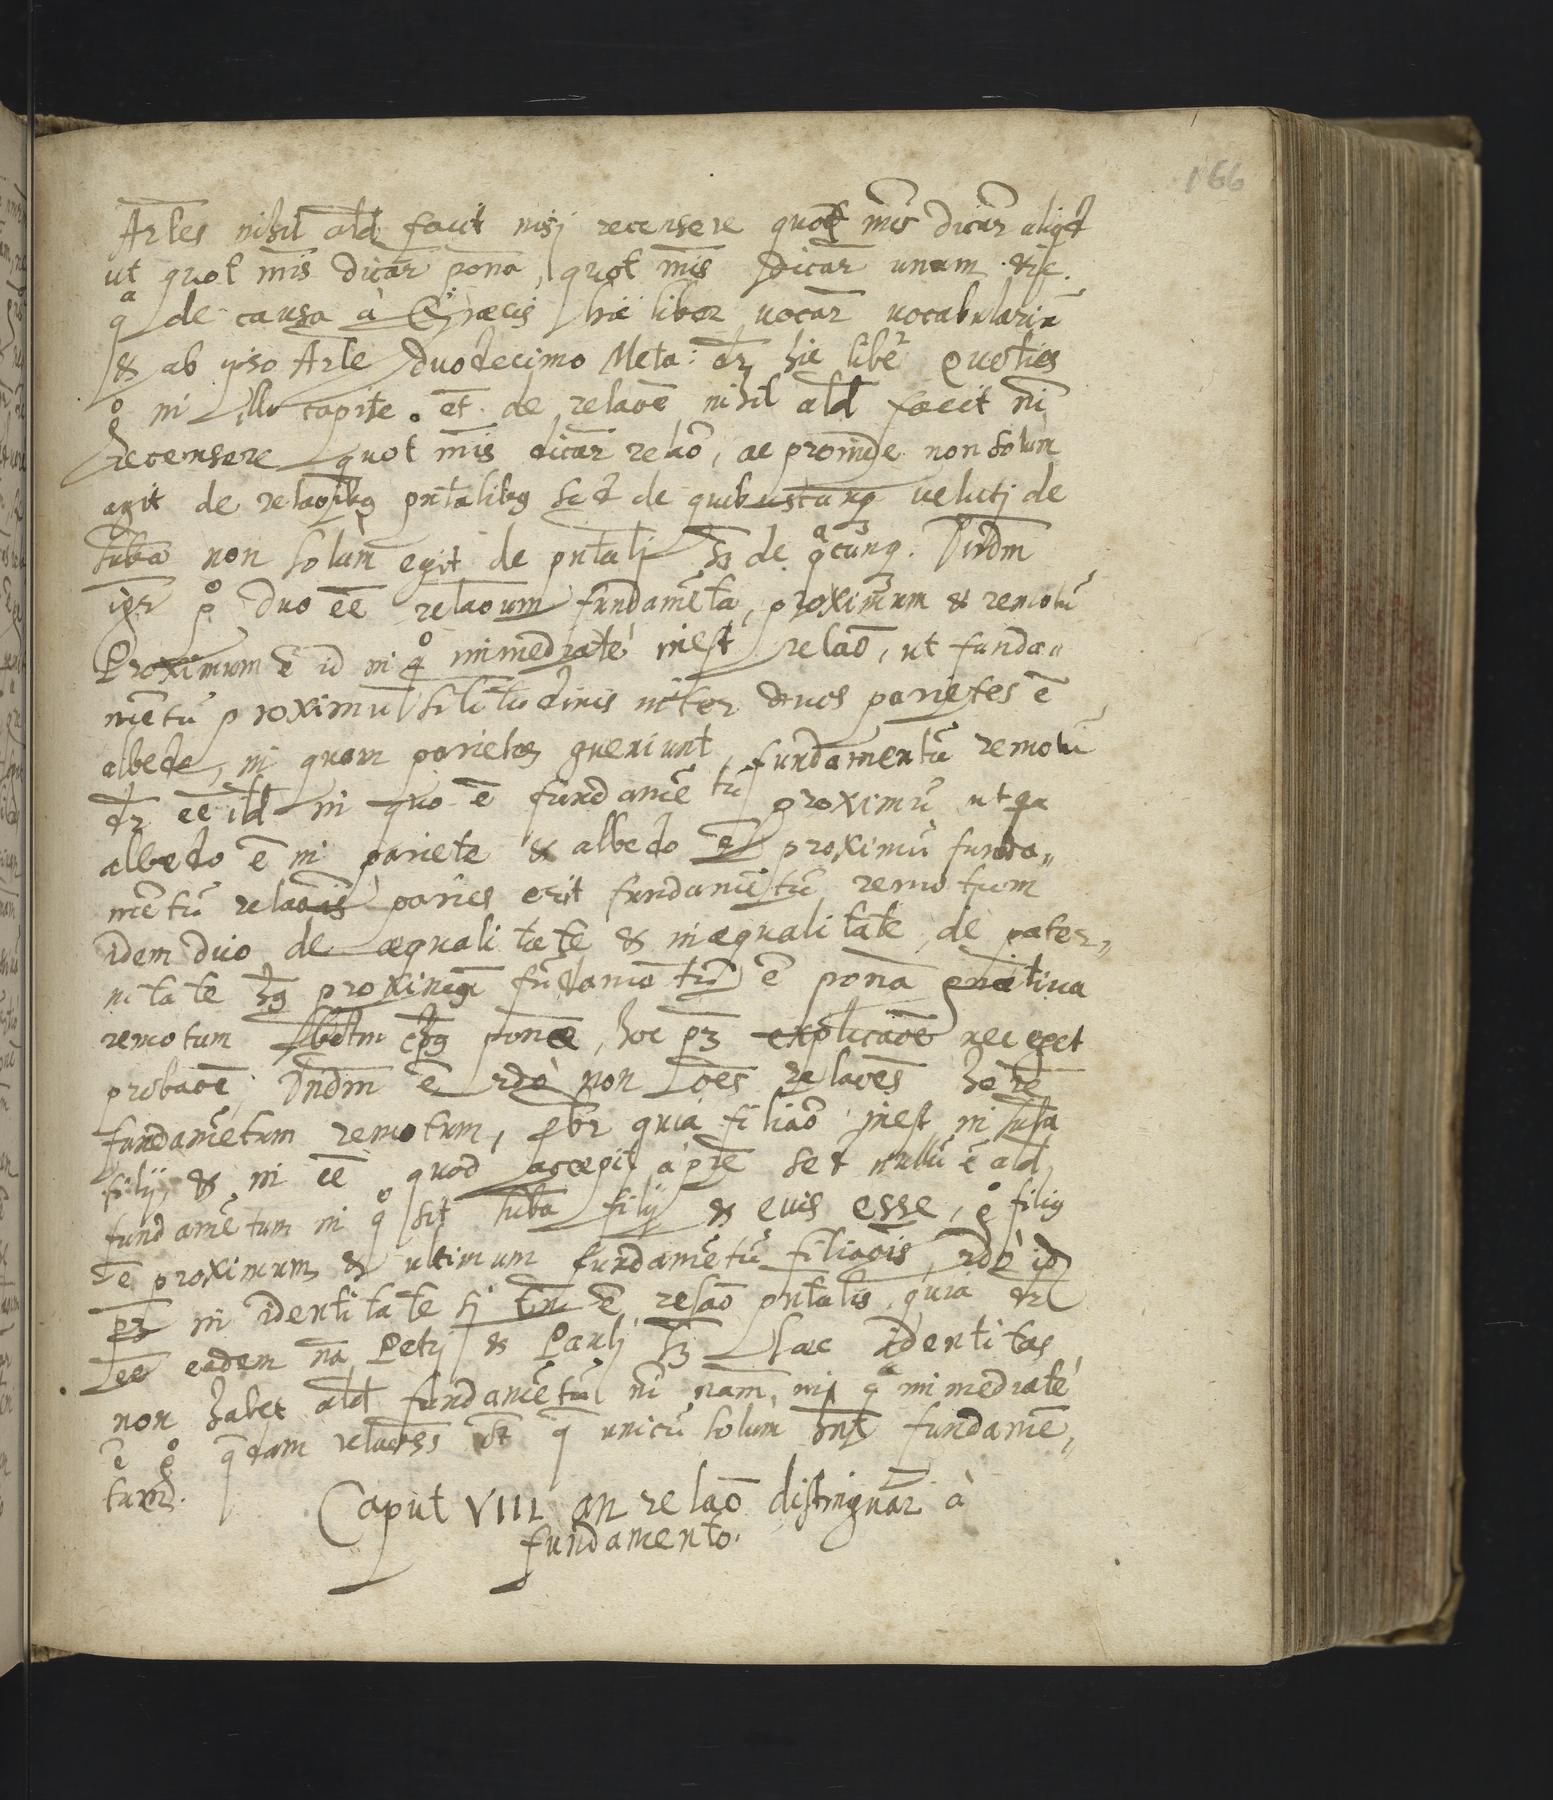 166
Arles nihil ald facit nisj recensere quot mis dicar̄ aliqd
ut quot mīs dicar̄ pōna, quot mīs dicar̄ unam &c.
qᵃ de causa à Græcis hic liber uocar̄ uocabulariū
& ab ipso Arle duodecimo Meta: dr̄ hic liber Quoties
in illo capite. et de relaoē nihil ald facit nī
recensere quot mīs dicar̄ relāo, ac proinde non solùm
agit de relaoībꝫ pn̄talibꝫ sed de quibuscunqꝫ uelutj de
suba non solùm egit de pn̄talj sꝫ de qᵃcunqꝫ. Dndm̄
igr̄ pº duo eē relaoum fundamēta, proximum & remotū
Proximum ē id in qº immediatè inest relāo, ut funda„
mētū proximū silitudinis inter duos parietes ē
albedo, in quam parietes queniunt, fundamentū remotū
dr̄ eē ild in quo ē fundamētū proximū ut qa
albedo ē in pariete & albedo ē proximū funda„
mētū relaoīs paries erit fundamētū remotum
idem duo de æqualitate & inæqualitate, de pater„
nitate hꝫ proximum fūdamētū ē pōna gnātiua
remotum pōnæ, hoc pꝫ explicaoē nec eget
probaoē, Dndm̄ ē 2do non oēs relaoēs hērē
fundamētum remotum, pbr̄ quia filiāo inest in suba
filij, & in eē quod accepit à prē set nullū ē ald
fundamētum in qº sit suba filij & euis esse, gº filiꝫ
ē proximum & ultimum fundamētū filiaoīs, 2dò id
pꝫ in identitate sj tn̄ ē relāo pn̄talis, quia dr̄
eē eadem nā Petrj & Paulj sꝫ hæc identitas
non habet ald fundamētū nī nam, in qᵃ immediatè
ē gº qdam relaoēs st q unicū solùm hn̄t fundamē„
tum.
Caput VIII an relāo distinguar̄ à
fundamento.